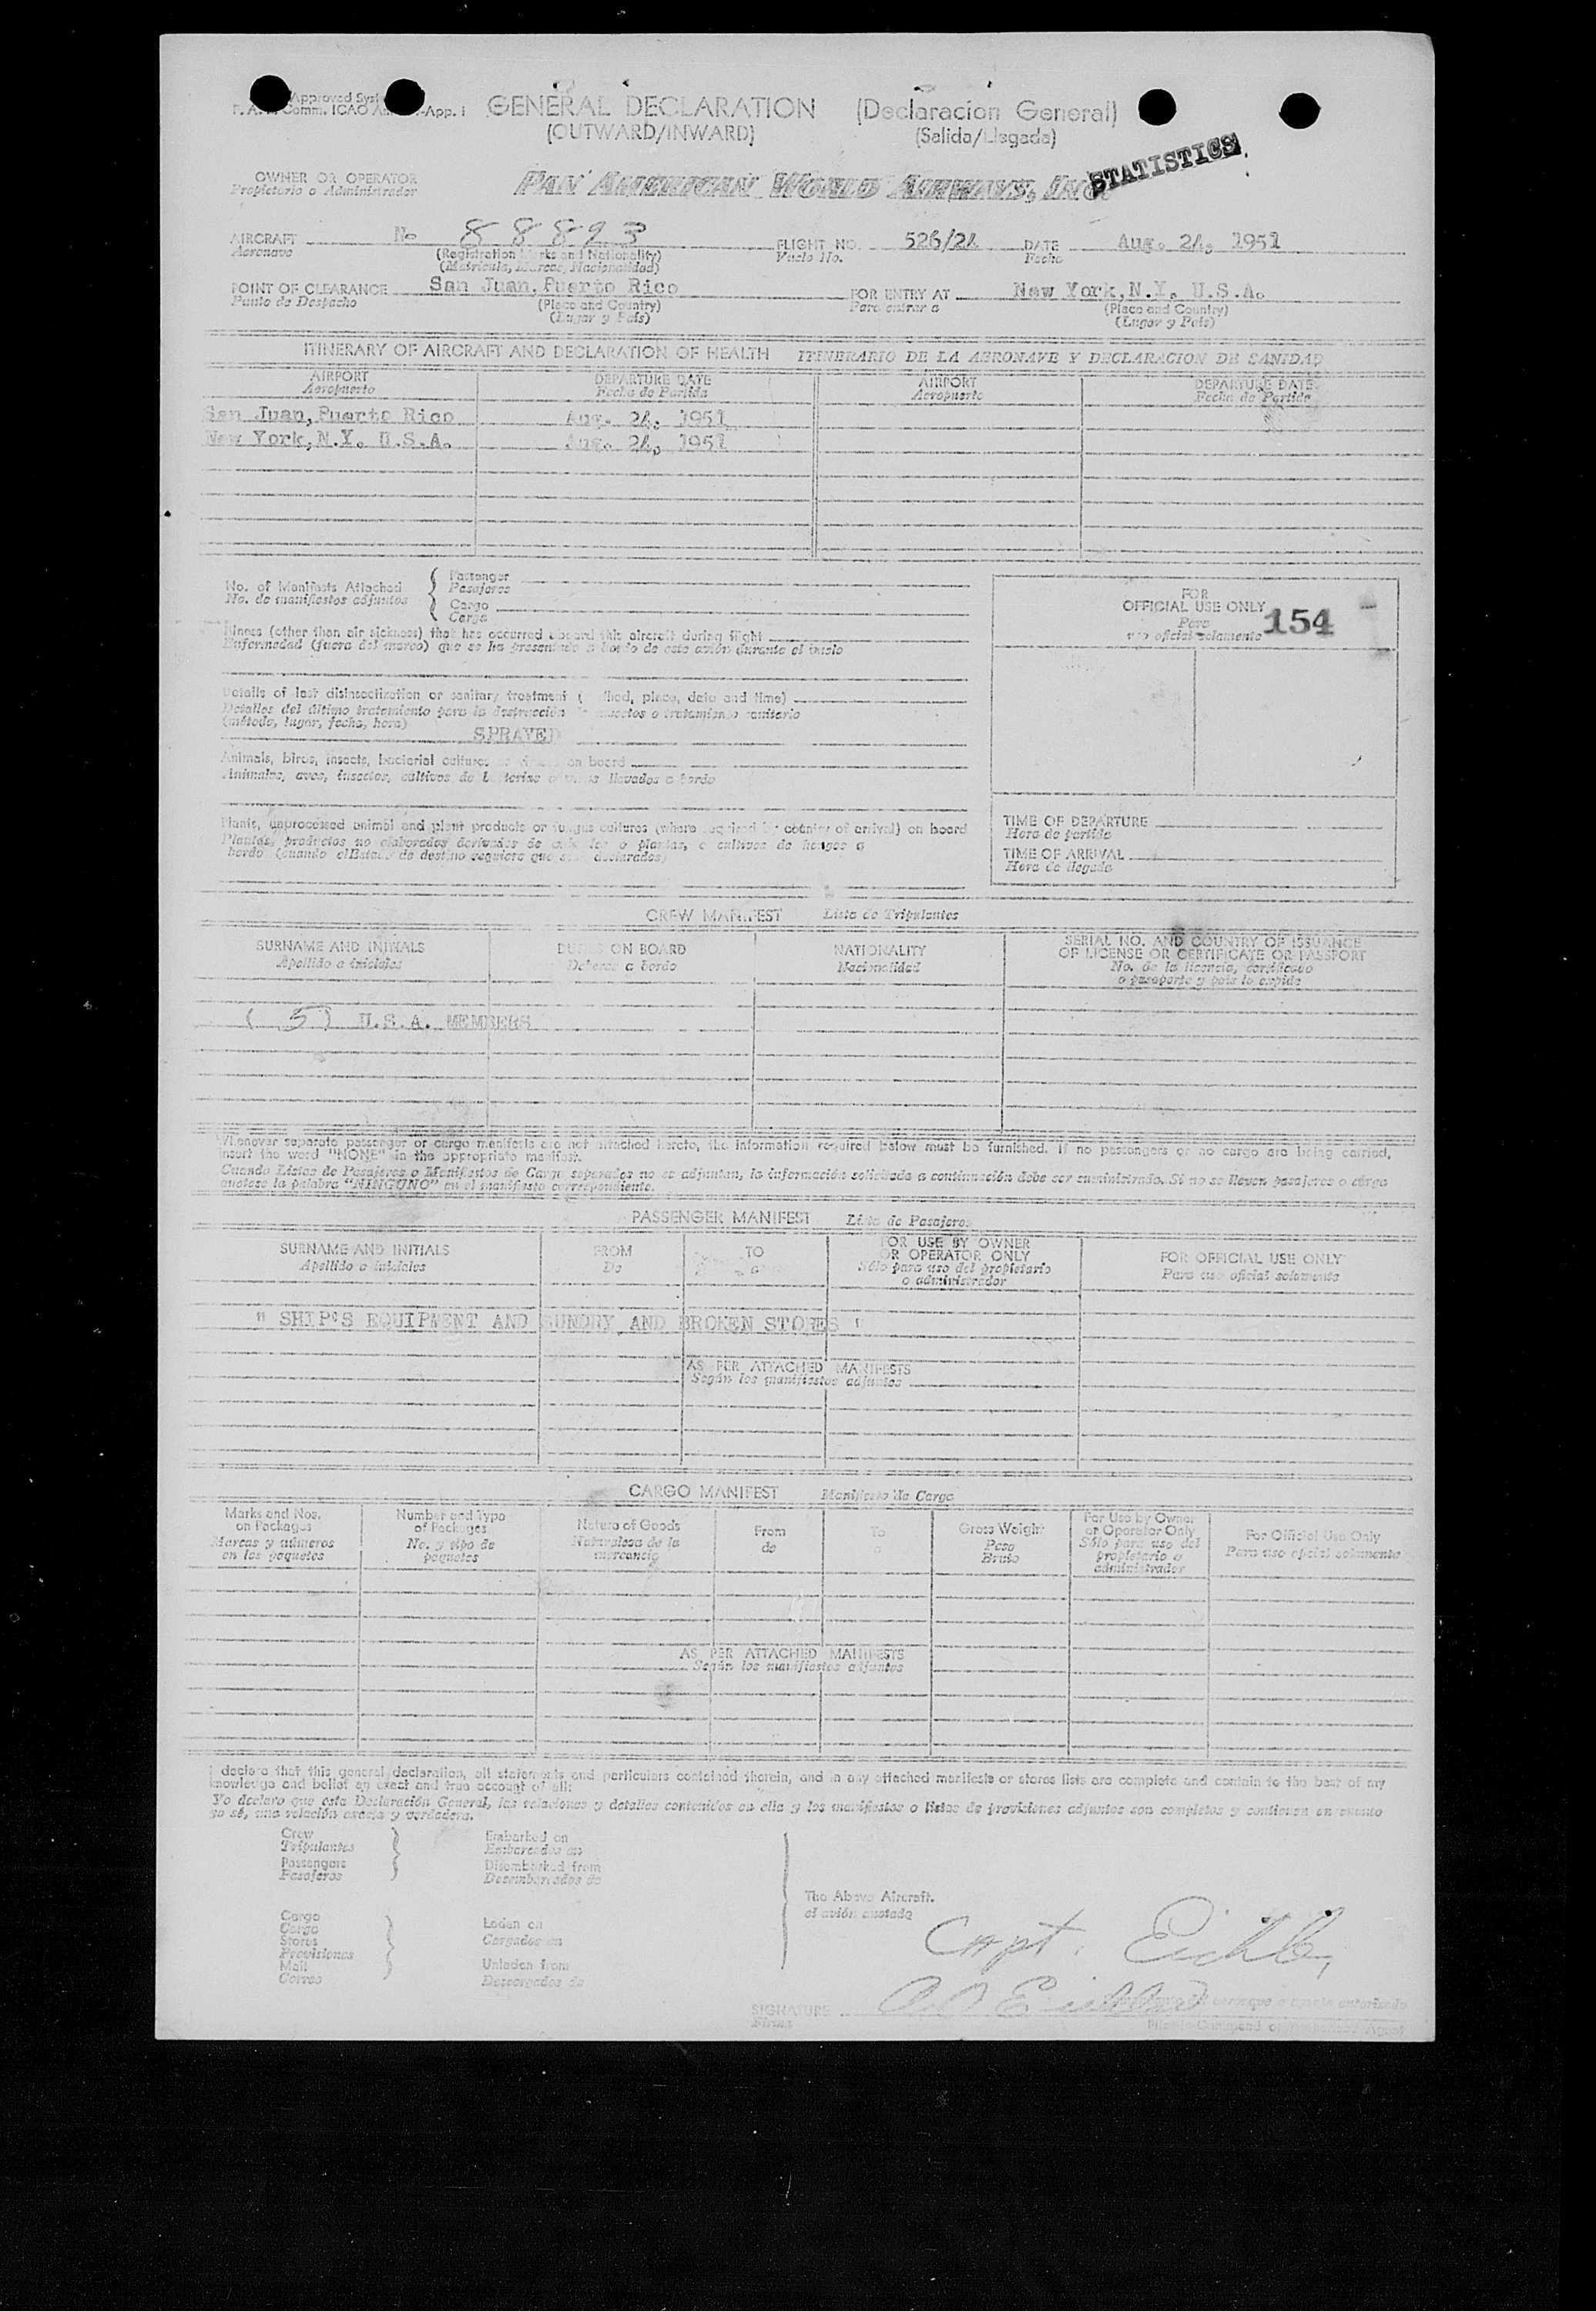 Approved Syst
Comm. ICAO -App. I
GENERAL DECLARATION (Declaracion General)
(OUTWARD/INWARD) (Salida/Llegada)
STATISTICS
OWNER OR OPERATOR PAN AMERICAN WORLD AIRWAYS, INC.
Propietario o Administrador
AIRCRAFT No 88893 FLIGHT NO. 526/24 DATE Aug. 24, 1951
Aeronave (Registration Marks and Nationality) Vuelo No. Fecha
(Matricula, Marcas, Nacionalidad)
POINT OF CLEARANCE San Juan, Puerto Rico FOR ENTRY AT New York, N.Y. U.S.A.
Punto de Despacho (Place and Country) Para entrar a (Place and Country)
(Lugar y País) (Lugar y País)
ITINERARY OF AIRCRAFT AND DECLARATION OF HEALTH ITINERARIO DE LA AERONAVE Y DECLARACION DE SANIDAD
AIRPORT DEPARTURE DATE AIRPORT DEPARTURE DATE
Aeropuerto Fecha de Partida Aeropuerto Fecha de Partida
San Juan, Puerto Rico Aug. 24, 1951
New York, N.Y. U.S.A. Aug. 24, 1951
No. of Manifests Attached Passenger
No. de manifiestos adjuntos Pasajeros
Cargo
Carga
FOR
OFFICIAL USE ONLY
Para
uso oficial solamente 154
Illness (other than air sickness) that has occurred aboard this aircraft during flight
Enfermedad (fuera del mareo) que se ha presentado a bordo de este avión durante el vuelo
Details of last disinsectization or sanitary treatment ( thod, place, date and time)
Detalles del último tratamiento para la destrucción de insectos o tratamiento sanitario
(método, lugar, fecha, hora)
SPRAYED
Animals, birds, insects, bacterial cultures on board
Animales, aves, insectos, cultivos de bacterias o virus llevados a bordo
Plants, unprocessed animal and plant products or fungus cultures (where required by country of arrival) on board
Plantas, productos no elaborados derivados de animales o plantas, o cultivos de hongos a
bordo (cuando el Estado de destino requiere que sean declarados)
TIME OF DEPARTURE
Hora de partida
TIME OF ARRIVAL
Hora de llegada
CREW MANIFEST Lista de Tripulantes
SURNAME AND INITIALS DUTIES ON BOARD NATIONALITY SERIAL NO. AND COUNTRY OF ISSUANCE
OF LICENSE OR CERTIFICATE OR PASSPORT
Apellido e iniciales Deberes a bordo Nacionalidad No. de la licencia, certificado
o pasaporte y pais lo expide
( 5 ) U.S.A. MEMBERS
Whenever separate passenger or cargo manifests are not attached hereto, the information required below must be furnished. If no passengers or no cargo are being carried,
insert the word "NONE" in the appropriate manifest.
Cuando Listas de Pasajeros o Manifiestos de Carga separados no se adjuntan, la información solicitada a continuación debe ser suministrada. Si no se llevan pasajeros o carga
anótese la palabra "NINGUNO" en el manifiesto correspondiente.
PASSENGER MANIFEST Lista de Pasajeros
SURNAME AND INITIALS FROM TO FOR USE BY OWNER
OR OPERATOR ONLY FOR OFFICIAL USE ONLY
Apellido e iniciales De a Sólo para uso del propietario
o administrador Para uso oficial solamente
" SHIP'S EQUIPMENT AND SUNDRY AND BROKEN STORES "
AS PER ATTACHED MANIFESTS
Según los manifiestos adjuntos
CARGO MANIFEST Manifiesto de Carga
Marks and Nos.
on Packages
Marcas y números
en los paquetes
Number and Type
of Packages
No. y tipo de
paquetes
Nature of Goods
Naturaleza de la
mercancia
From
de
To
a
Gross Weight
Peso
Bruto
For Use by Owner
or Operator Only
Sólo para uso del
propietario o
administrador
For Official Use Only
Para uso oficial solamente
AS PER ATTACHED MANIFESTS
Según los manifiestos adjuntos
I declare that this general declaration, all statements and particulars contained therein, and in any attached manifests or stores lists are complete and contain to the best of my
knowledge and belief an exact and true account of all:
Yo declaro que esta Declaración General, las relaciones y detalles contenidos en ella y los manifiestos o listas de provisiones adjuntos son completos y contienen en cuanto
yo sé, una relación exacta y verdadera.
Crew Embarked on
Tripulantes Embarcados en
Passengers Disembarked from
Pasajeros Desembarcados de
The Above Aircraft.
el avión anotado
Cargo
Carga Laden on
Stores Cargados en
Provisiones
Mail Unladen from
Correo Descargados de
Capt. Eichler
SIGNATURE
Firma